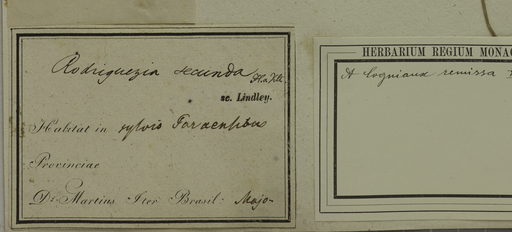 Rodriguezia secunda H. et Kth.
sc. Lindley.
Habitat in sylvis Paraensibus
Provinciae
Dr. Martius Iter Brasil: Majo-
HERBARIUM REGIUM MONAC
A Cogniaux remissa